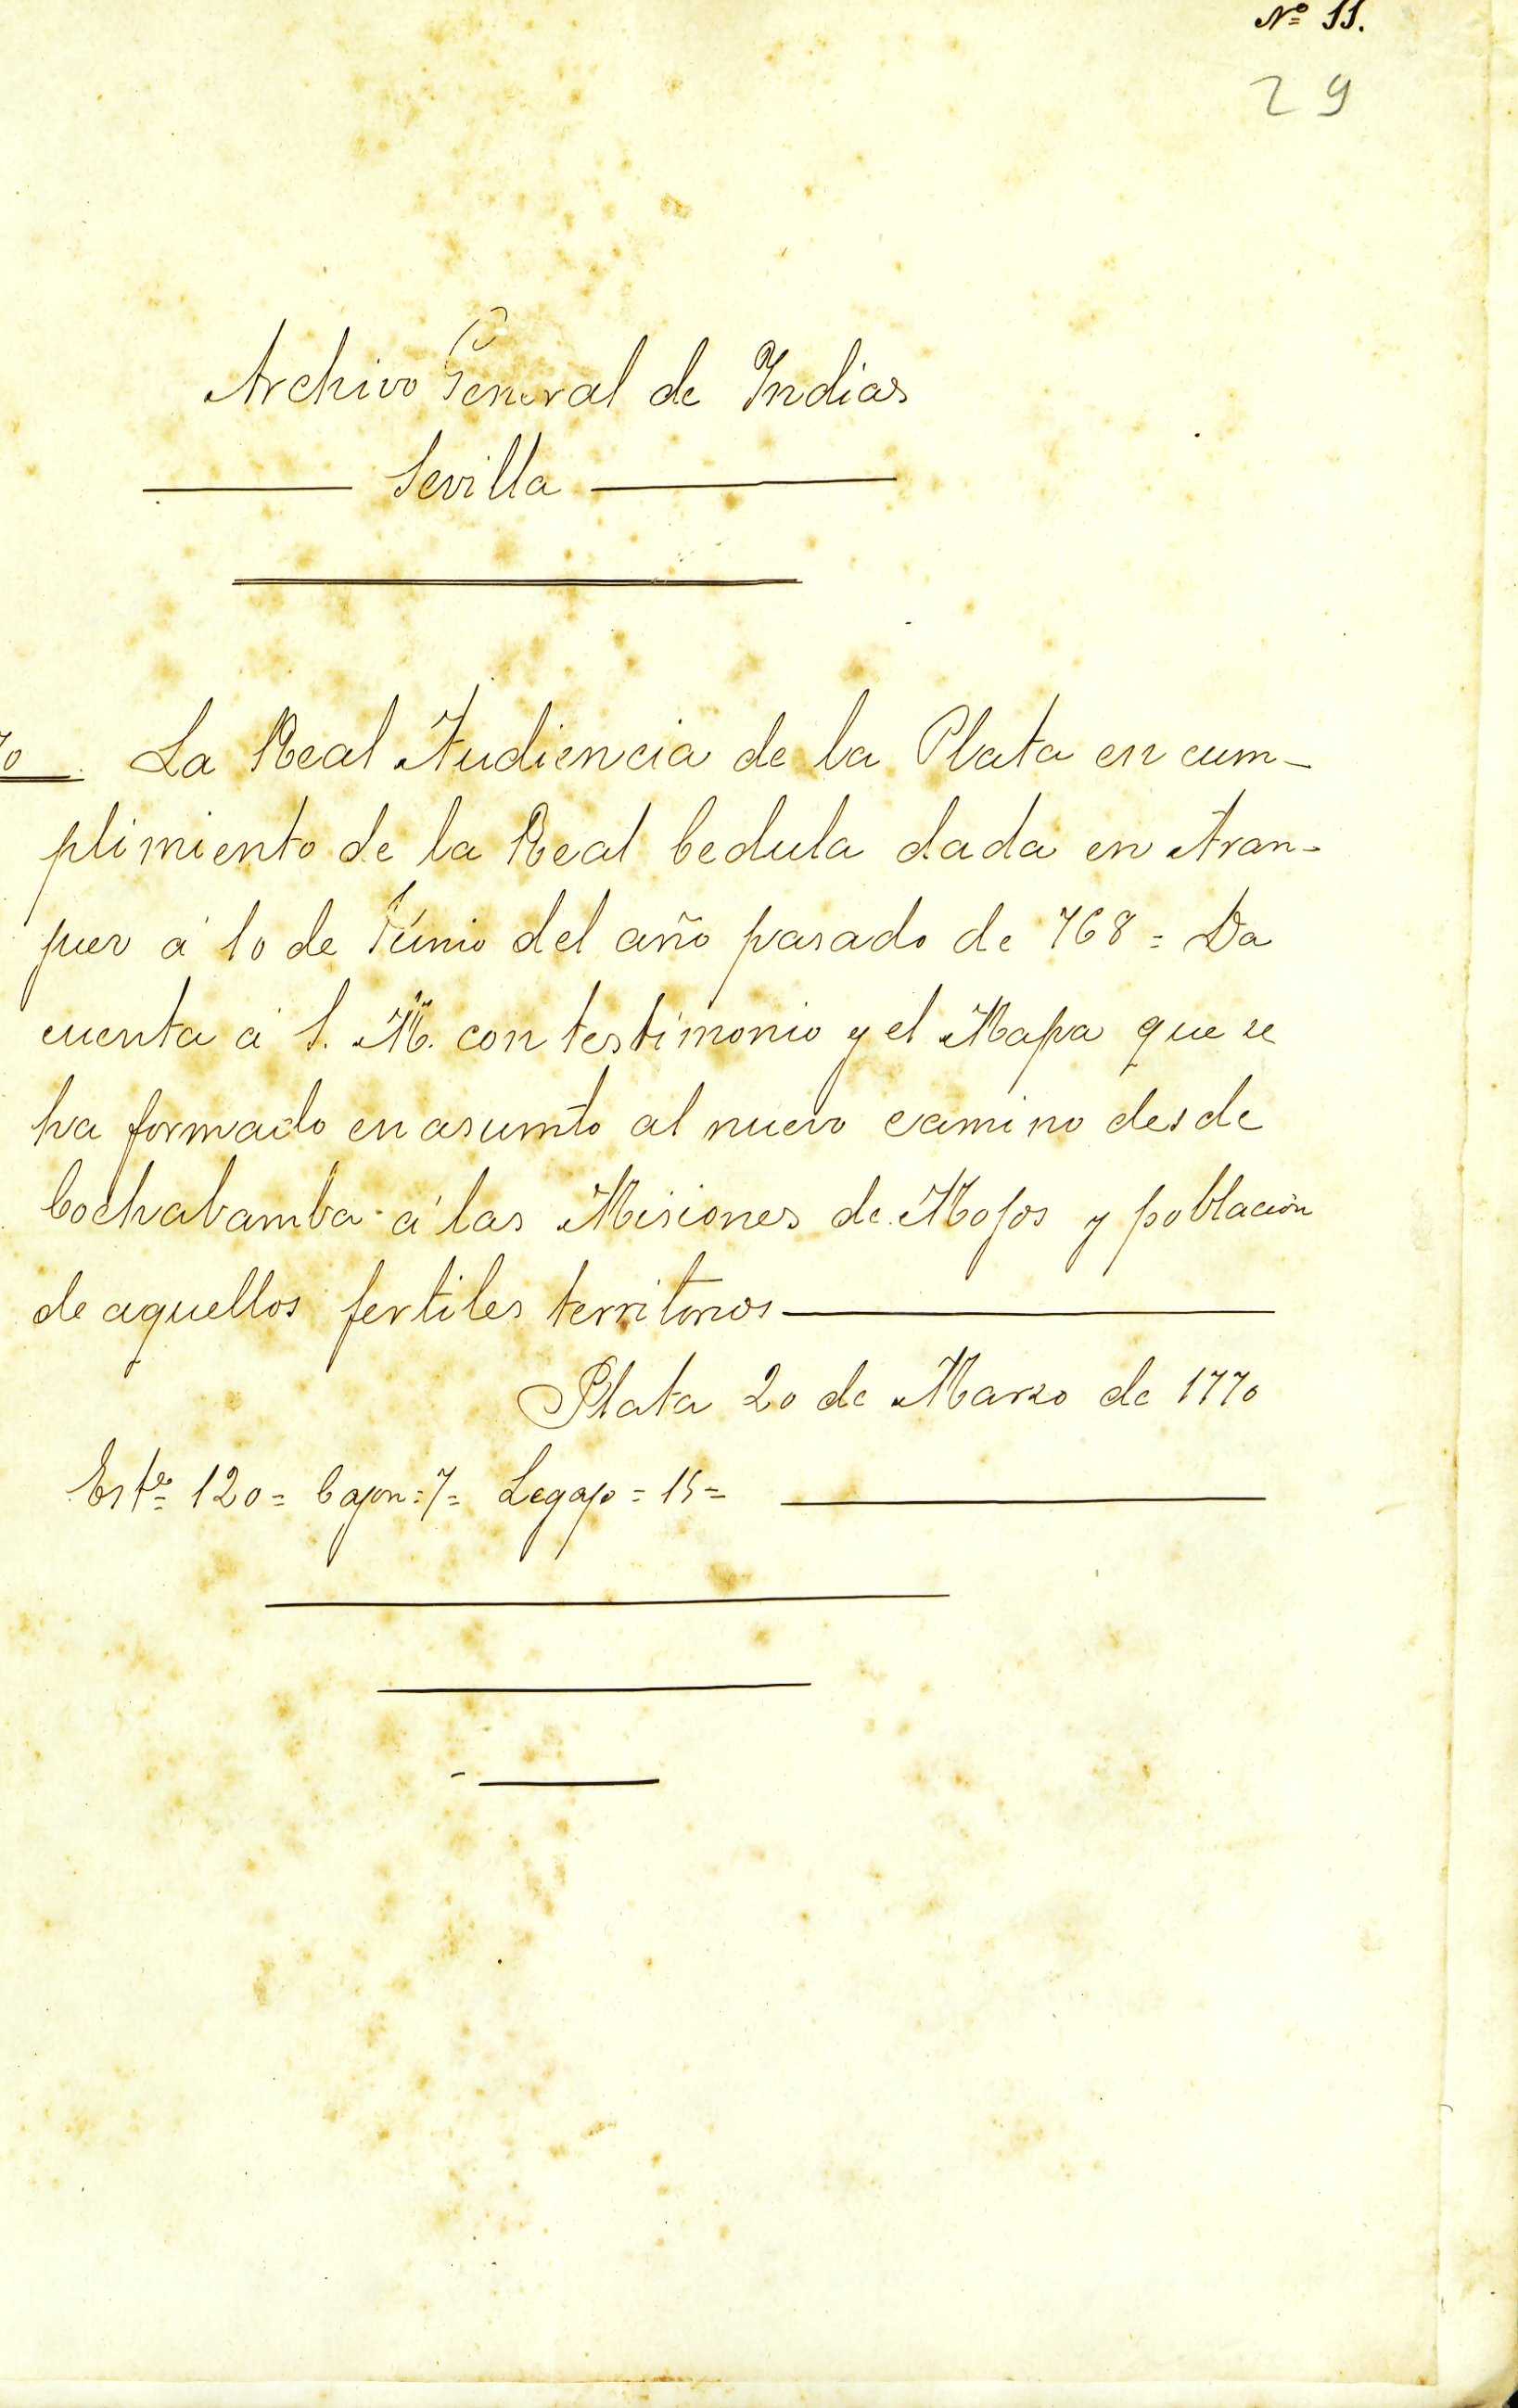 Nº 11.
29
Archivo General de Indias
Sevilla
70 La Real Audiencia de la Plata en cum-
plimiento de la Real Cedula dada en Aran-
juez á 10 de Junio del año pasado de 768 = Da
cuenta á S. M. con testimonio y el Mapa que se
ha formado en asumto al nuevo camino desde
Cochabamba á las Misiones de Mojos y población
de aquellos fertiles territorios
Plata 20 de Marzo de 1770
Este = 120 = Cajon = 7 = Legajo = 15 =